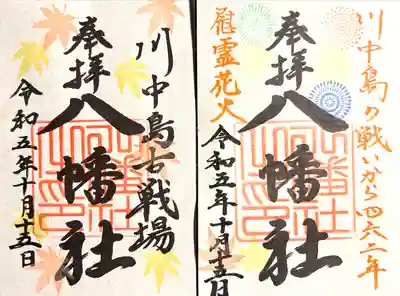 川中島古戦場
奉拝
八幡社
令和五年十月十五日
川中島の戦いから四六二年
奉拝
八幡社
慰霊花火
令和五年十月十五日